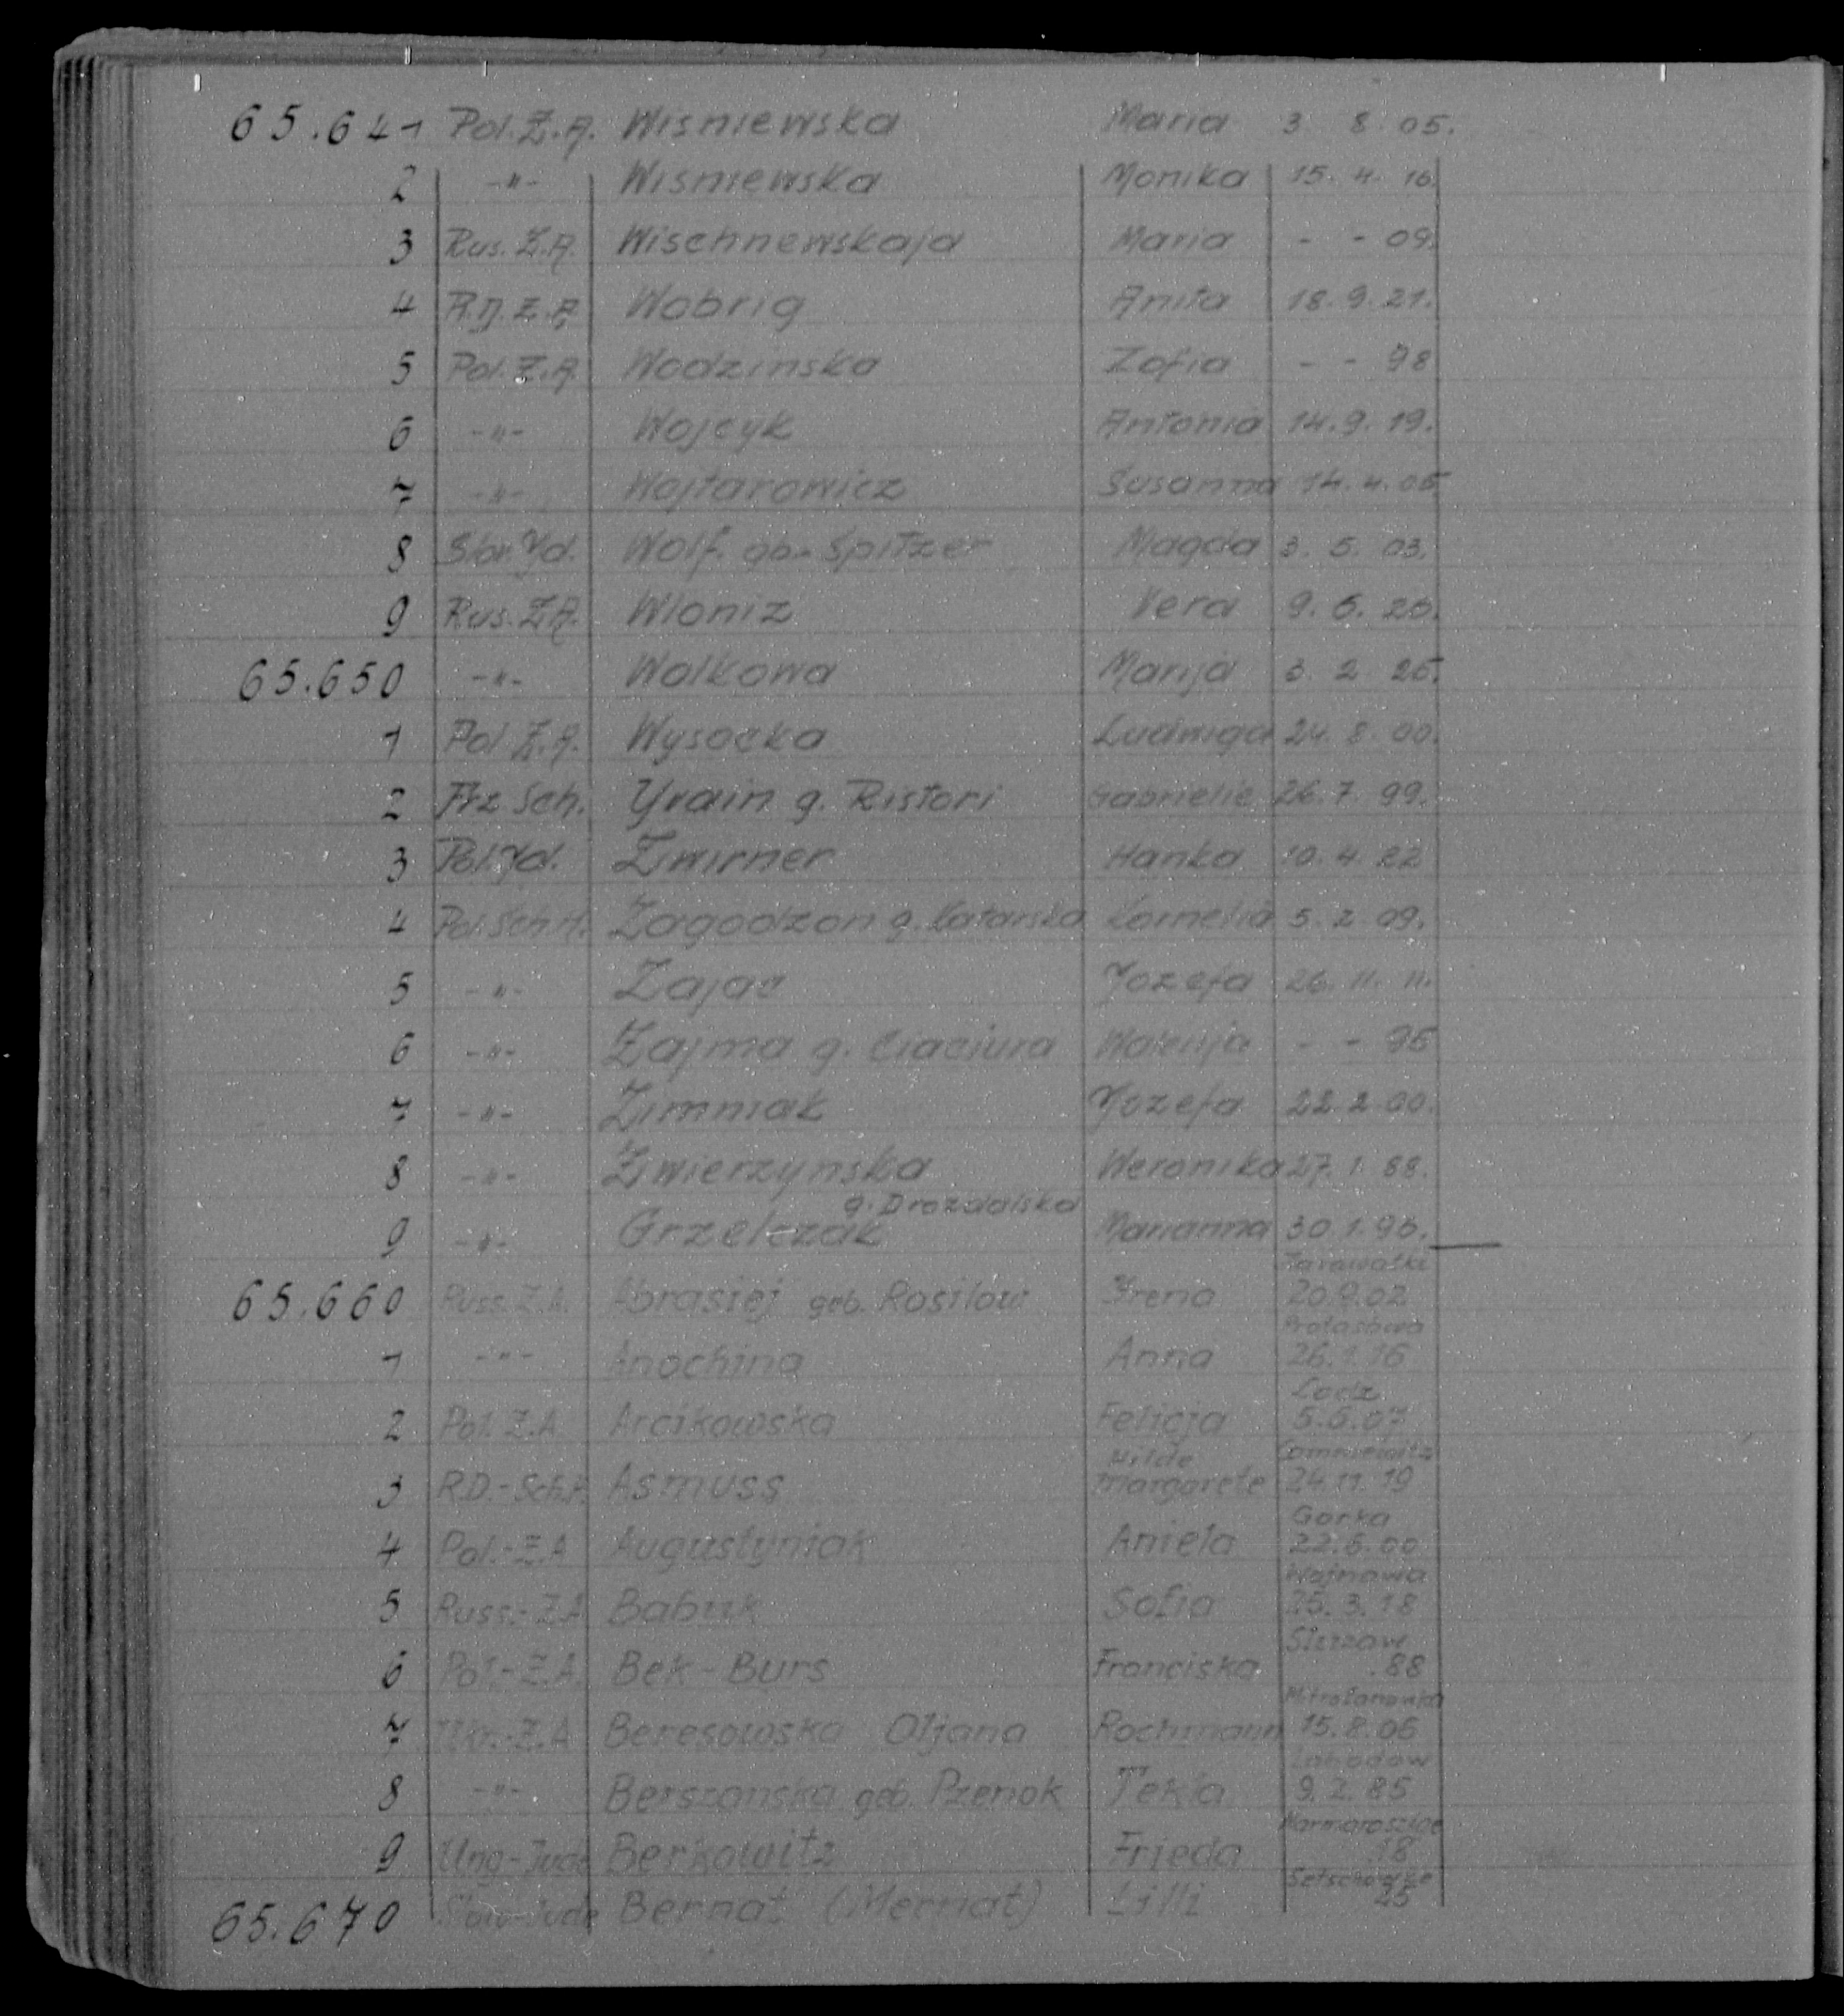 65.641 Pol.Z.A. Wisniewska Maria 3. 8. 05.
2 -"- Wisniewska Monika 15. 4. 16.
3 Rus. Z.A. Wischnewskaja Maria - - 09.
4 R.D. Z.A. Wobrig Anita 18. 9. 21.
5 Pol. Z.A. Wodzinska Zofia - - 98
6 -"- Wojcyk Antonia 14. 9. 19.
7 -"- Wojtarowicz Susanna 14. 4. 05
8 Slov. Yd. Wolf gb. Spitzer Magda 3. 5. 03.
9 Rus. Z.A. Wloniz Vera 9. 6. 26.
65.650 -"- Wolkowa Marija 3. 2. 25.
1 Pol Z.A. Wysocka Ludwiga 24. 8. 00.
2 Frz Sch. Yvain g. Ristori Gabrielie 26. 7. 99.
3 Pol. Yd. Zwirner Hanka 10. 4. 22
4 Pol. Sch.H. Zagodzon g. Kornelia 5. 2. 09.
5 -"- Zajac Yozefa 26. 11. 11.
6 -"- Zajma g. Ciaciura - - 96
7 -"- Zimniak Yozefa 22. 2. 00.
8 -"- Zwierzynska Weronika 27. 1. 88.
g. Drozdalska
9 -"- Grzelczak Marianna 30. 1. 96.
65.660 Russ. Z.A. Abrasiej geb. Rosilow Yrena 20.9.02
1 -"- Anochina Anna 26. 1. 16
Lodz
2 Pol. Z.A. Arcikowska Felicja 5.6.07
Hilde
3 R.D.-Sch.H. Asmuss Margarete 24. 11. 19
Gorka
4 Pol.-Z.A Augustyniak Aniela 22.6.00
Wojnowa
5 Russ.-Z.A Babuk Sofia 25. 3. 18
6 Pol.-Z.A. Bek-Burs Franciska .88
7 Ukr.-Z.A Beresowska Oljana Rochmann 15. 8. 06
8 -"- geb. Pzenok Tekla 9. 2. 85
9 Ung-Jude Berkowitz Frieda 18
65.670 Slow-Jude Bernat (Mernat) Lilli 25